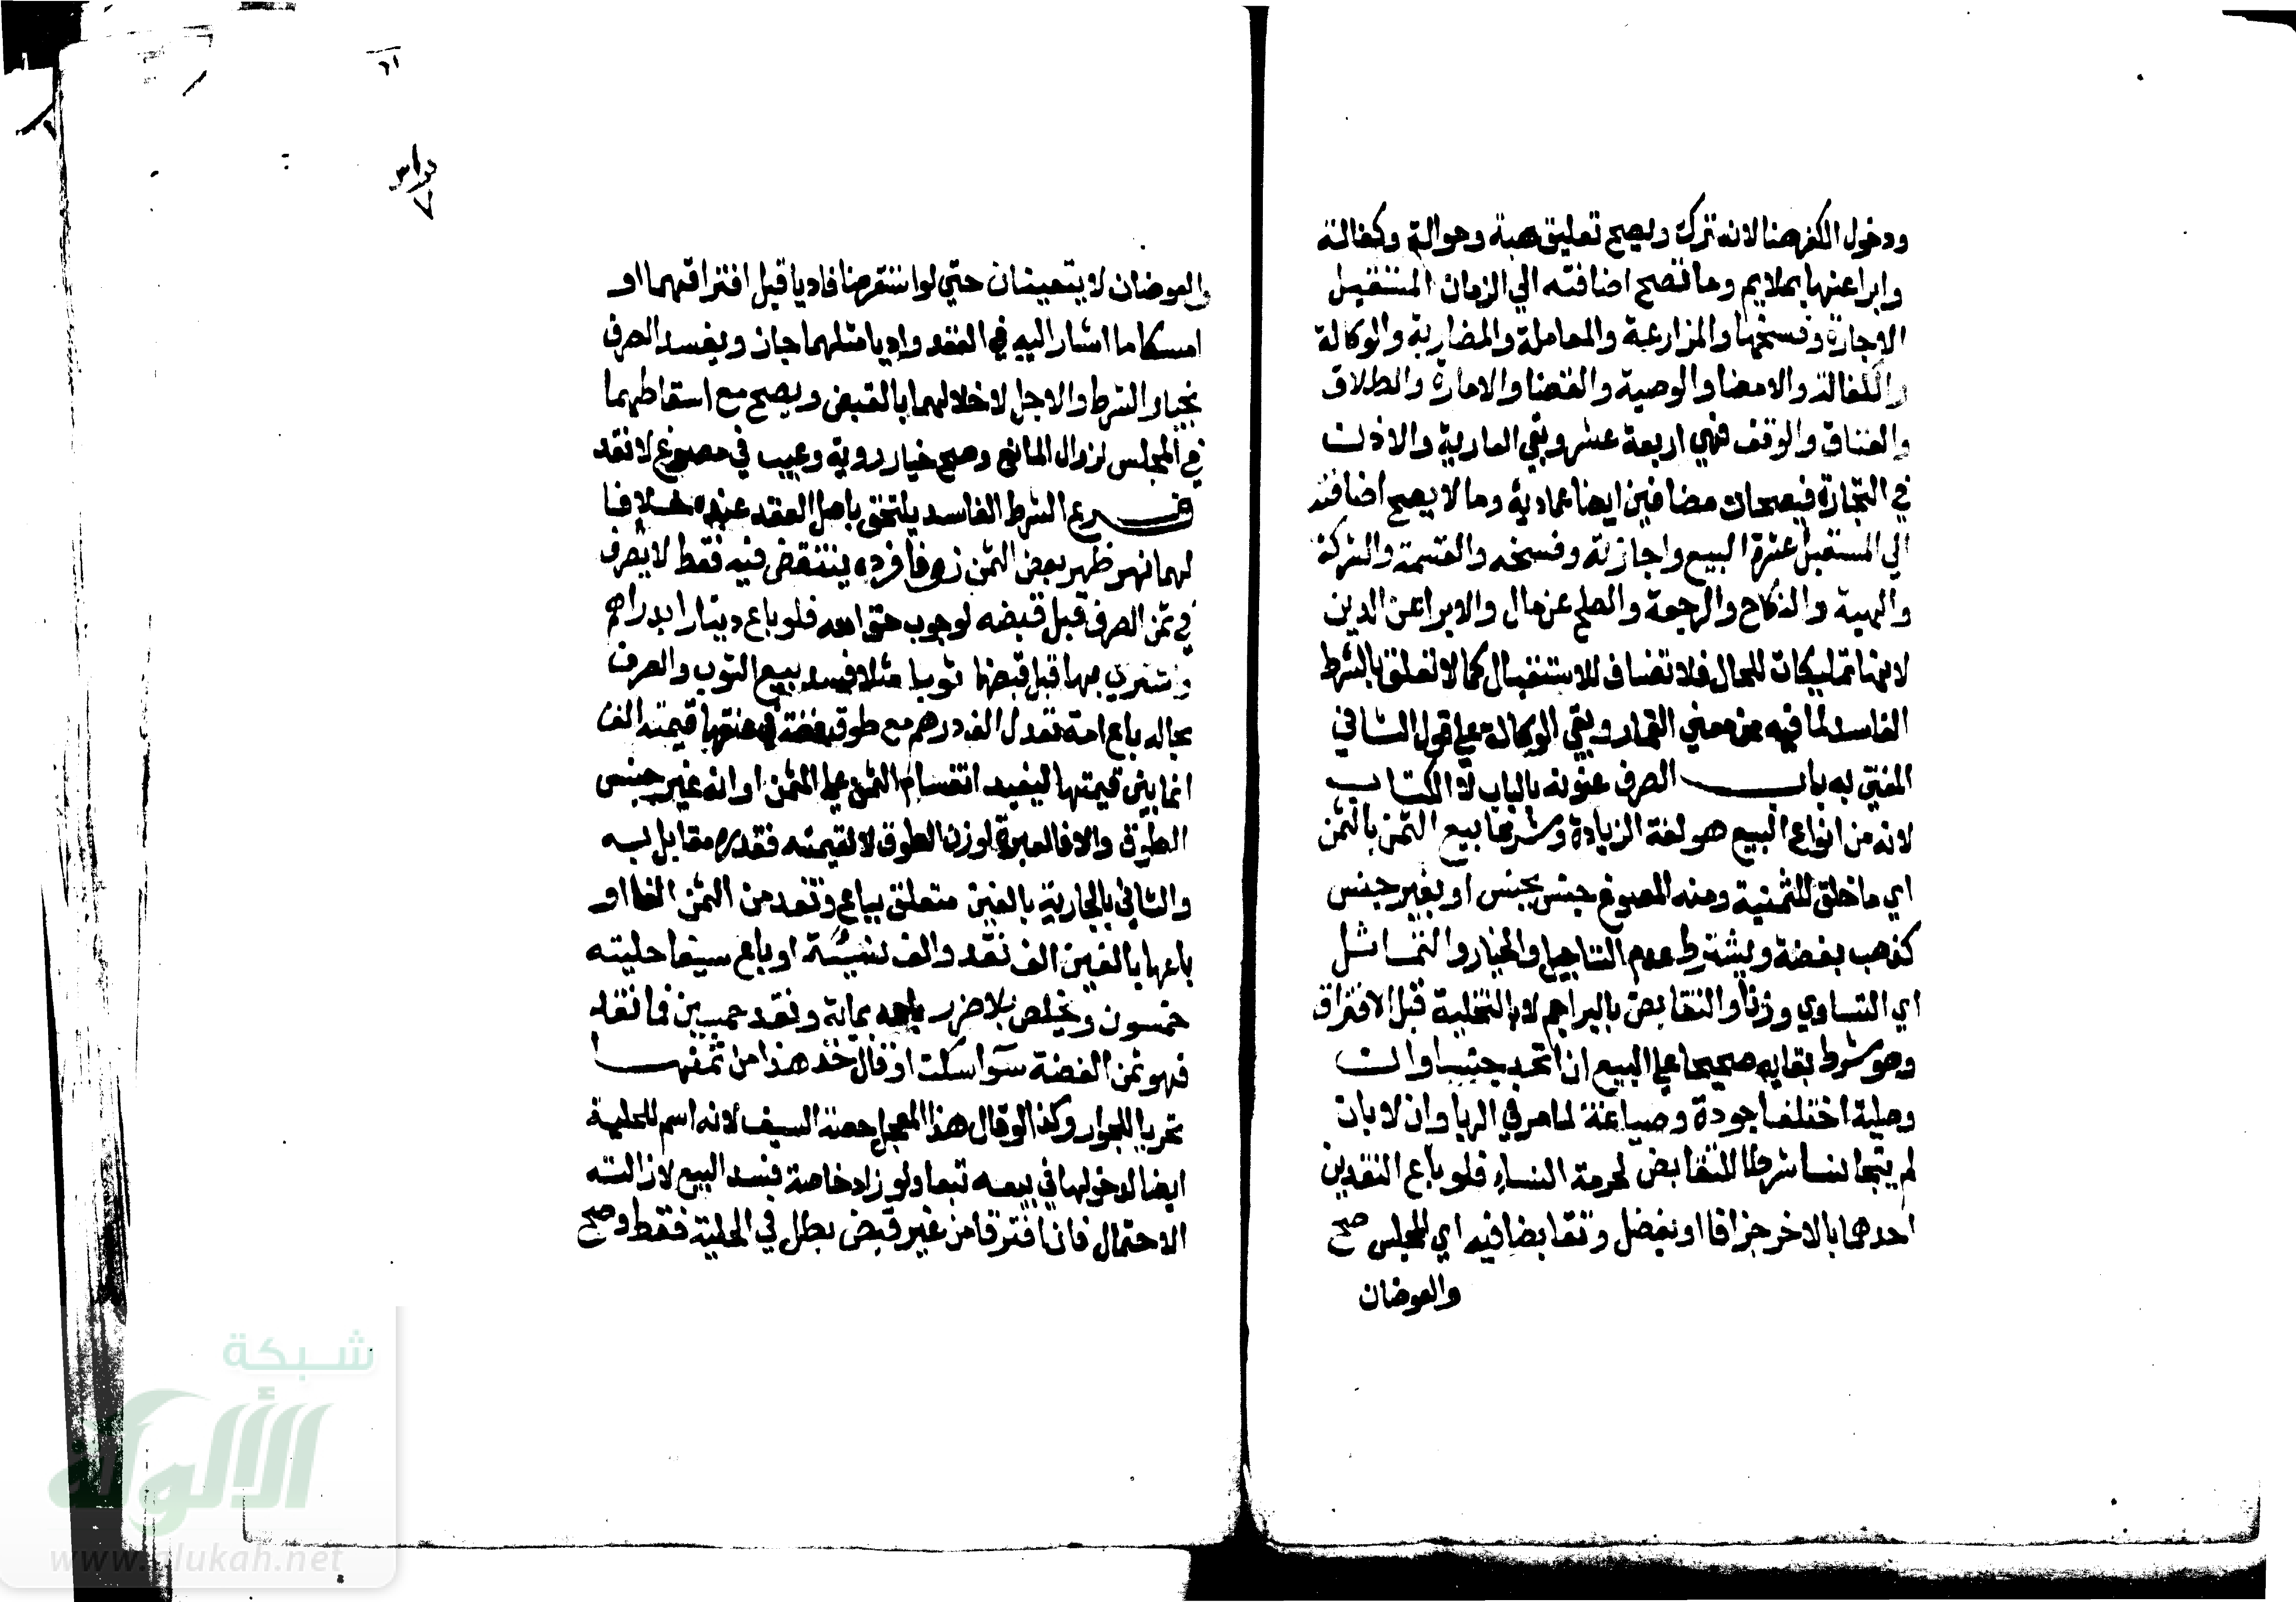 ودخول الكفر هنا لانه ترك ويصح تعليق هبة وحوالة وكفالة
وابرا عنها بملايم وما تصح اضافته الي الزمان المستقبل
الاجارة وفسخها والمزارعة والمعاملة والمضاربة والوكالة
والكفالة والايصا والوصية والقضا والامارة والطلاق
والعتاق والوقف فهي اربعة عشر وبقي العارية والاذن
في التجارة فيصحان مضافين ايضا عمادية وما لا يصح اضافته
الي المستقبل عشرة البيع واجازته وفسخه والقسمة والشركة
والهبة والنكاح والرجعة والصلح عن مال والابرا عن الدين
لانها تمليكات للحال فلا تضاف للاستقبال كما لا تعلق بالشرط
الفاسد لما فيه من معني القمار وبقي الوكالة علي قول الثاني
المفتي به باب الصرف عنونه بالباب لا الكتاب
لانه من انواع البيع هو لغة الزيادة وشرعا بيع الثمن بالثمن
اي ما خلق للثمنية ومنه المصوغ جنس بجنس او بغير جنس
كذهب بفضة ويشترط عدم التاجيل والخيار والتماثل
اي التساوي وزنا والتقابض بالبراجم لا بالتخلية قبل الافتراق
وهو شرط بقايه صحيحا علي البيع ان اتحد جنسا وان
وصلية اختلفا جودة وصياغة لما مر في الربا وان لا بان
لم يتجانسا شرط التقابض لحرمة النساء فلو باع النقدين
احدهما بالاخر جزافا او بفضل وتقابضا فيه اي المجلس صح
والعوضان
والعوضان لا يتعينان حتي لو استقرضا فاديا قبل افتراقهما او
امسكا ما اشار اليه في العقد واديا مثلهما جاز ويفسد الصرف
بخيار الشرط والاجل لاخلالهما بالقبض ويصح مع اسقاطهما
في المجلس لزوال المانع وصح خيار روية وعيب في مصوغ لا نقد
فرع الشرط الفاسد يلتحق باصل العقد عنده خلافا
لهما نهر ظهر بعض الثمن زيوفا فرده ينتقض فيه فقط لا يتصرف
في ثمن الصرف قبل قبضه لوجوب حق الله فلو باع دينارا بدراهم
واشتري بها قبل قبضها ثوبا مثلا فسد بيع الثوب والصرف
بحاله باع امة تعدل الف درهم مع طوق فضة في عنقها قيمته الف
انما بين قيمتها ليفيد انقسام الثمن علي المثمن او انه غير جنس
الطوق والا فالعبرة لوزن الطوق لا لقيمته فقدره مقابل به
والباقي بالجارية بالفين متعلق بباع ونقد من الثمن الفا او
باعها بالفين الف نقد والف نسيئة او باع سيفا حليته
خمسون ويخلص بلا ضرر باعه بماية ونقد خمسين فما نقد
فهو ثمن الفضة سوآ سكت او قال خذ هذا من ثمنهما
تحريا للجواز وكذا لو قال هذا المعجل حصة السيف لانه اسم للحلية
ايضا لدخولها في بيعه تبعا ولو زاد خاصة فسد البيع لازالته
الاحتمال فان افترقا من غير قبض بطل في الحلية فقط وصح
شبكة
الألوكة
www.alukah.net